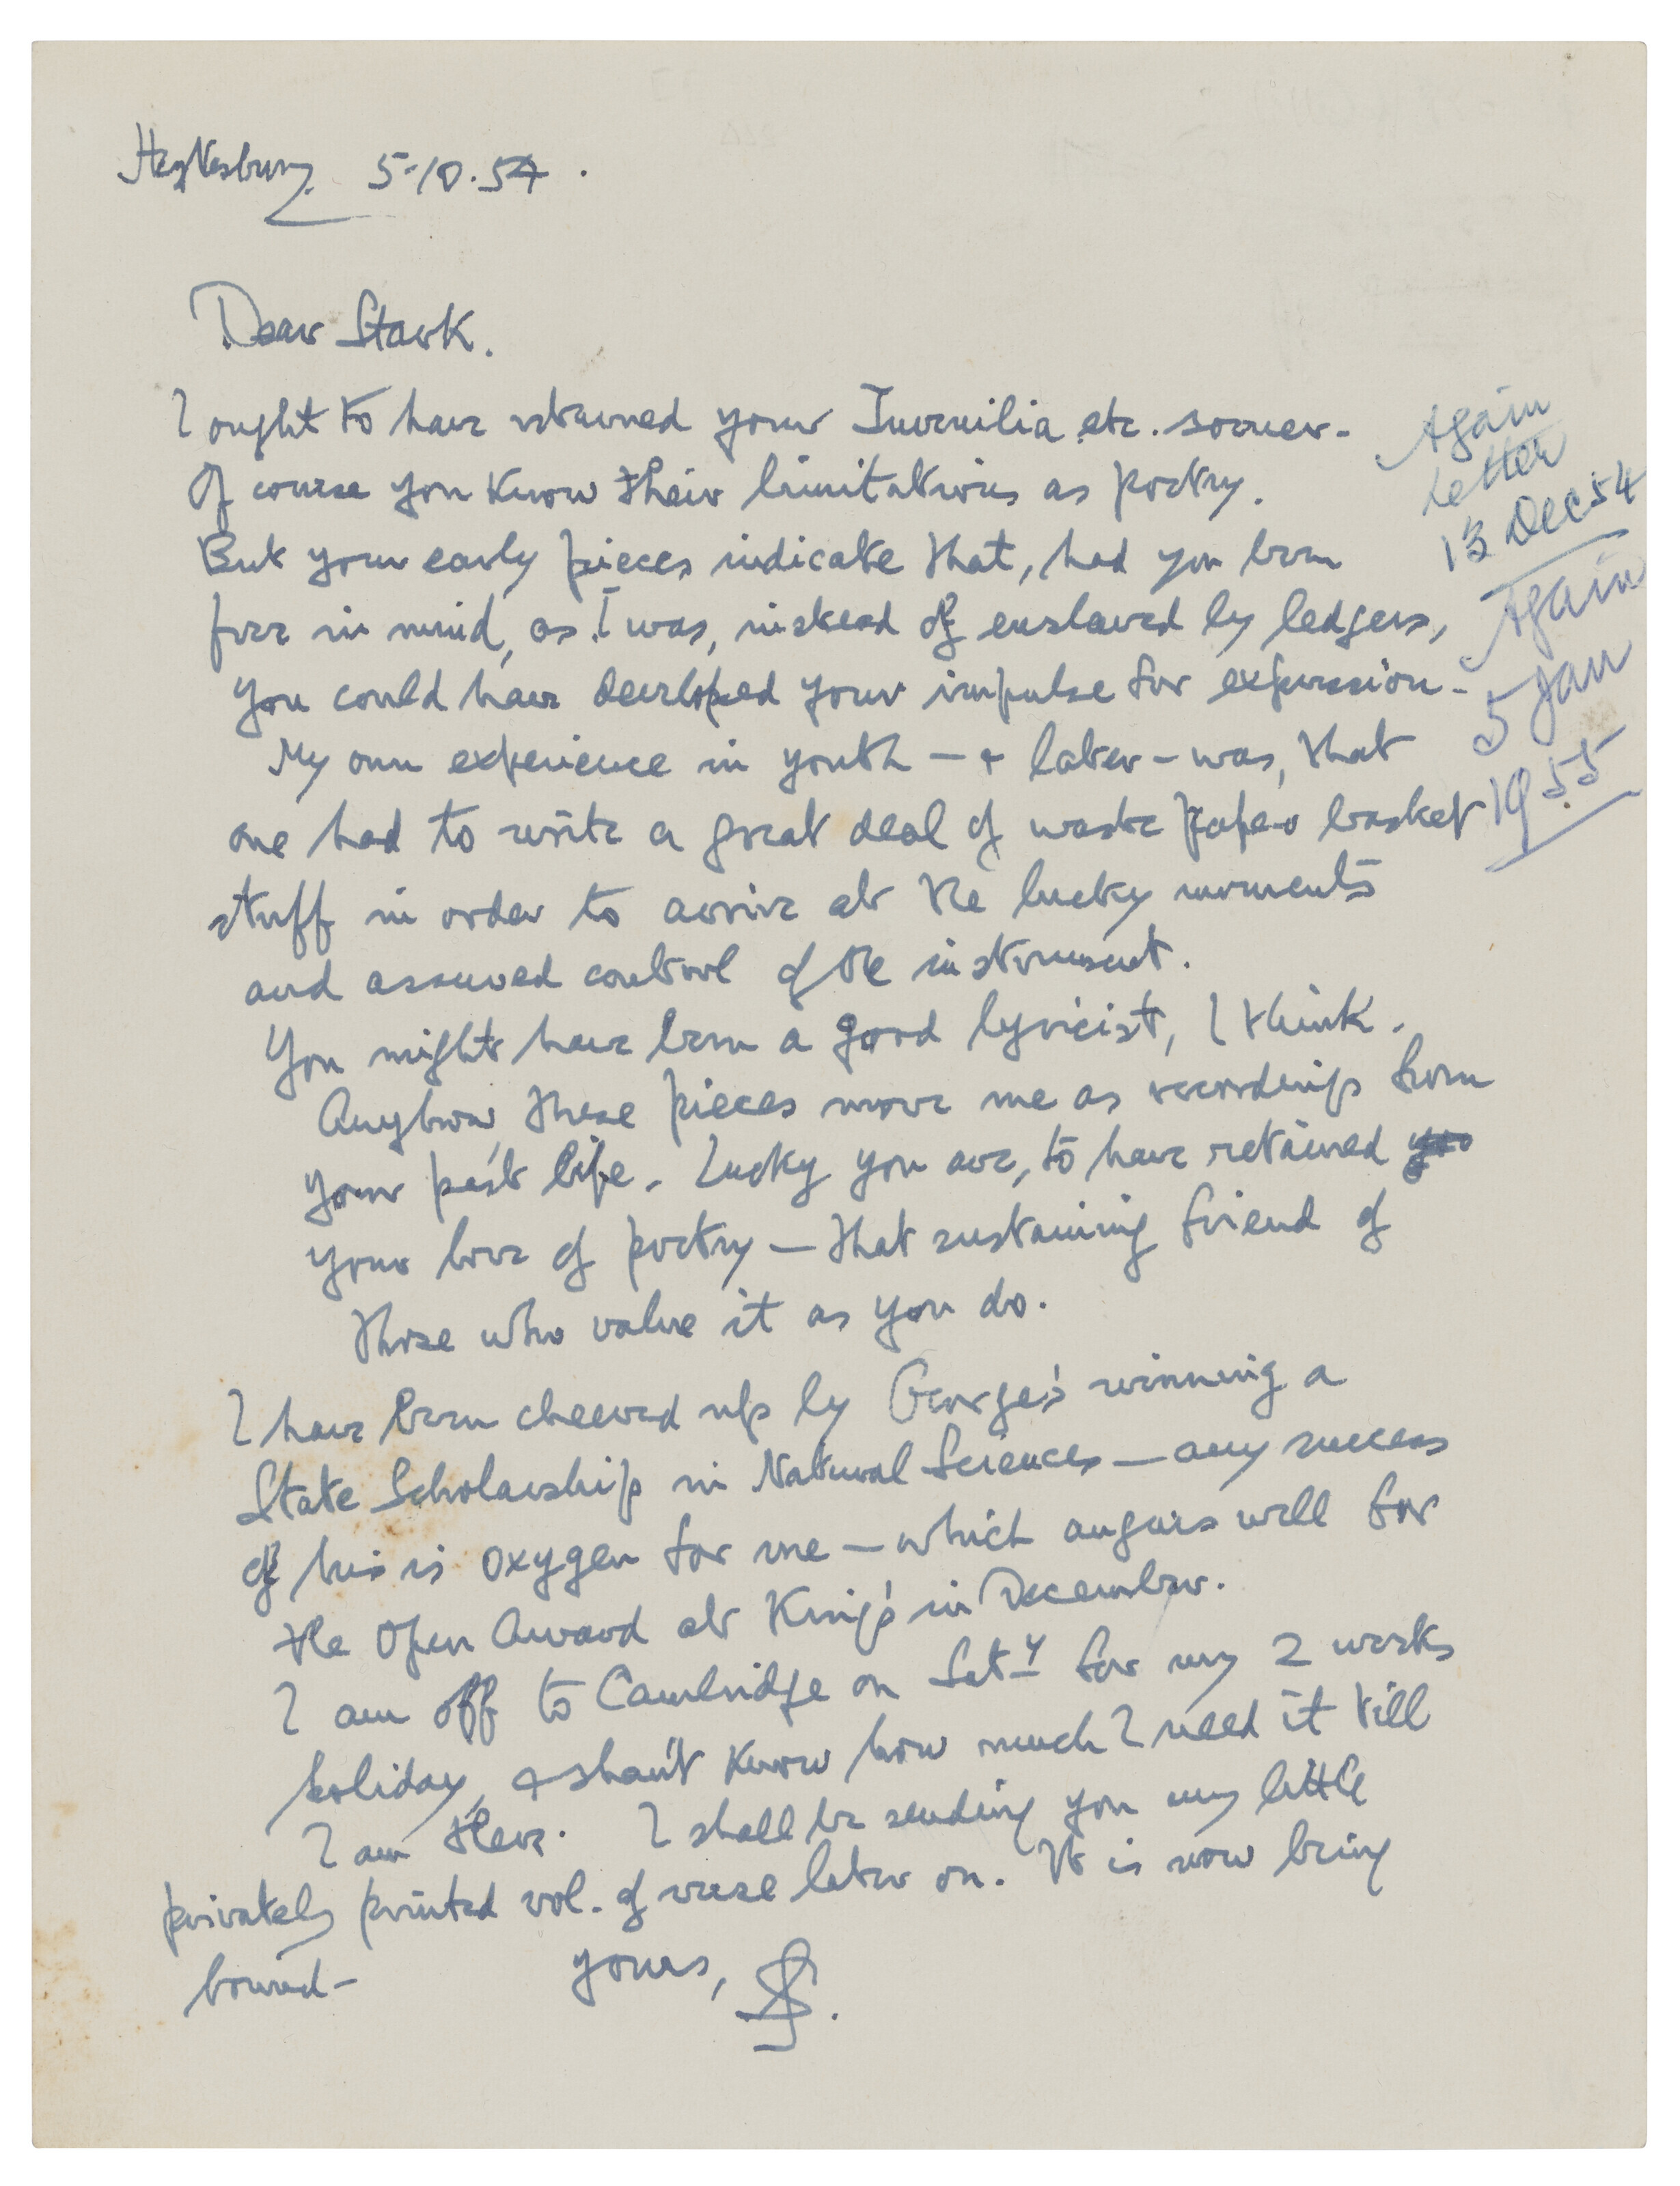 Heytesbury 5.10.54.
Dear Stark.
I ought to have returned your Juvenilia etc. sooner -
Of course you know their limitations as poetry.
But your early pieces indicate that, had you been
free in mind, as I was, instead of enslaved by ledgers,
you could have developed your impulse for expression -
My own experience in youth — & later — was, that
one had to write a great deal of waste paper basket
stuff in order to arrive at the lucky moments
and assured control of the instrument.
You might have been a good lyricist, I think.
Anyhow, these pieces move me as recordings from
your past life. Lucky you are, to have retained
your love of poetry — that sustaining friend of
those who value it as you do.
I have been cheered up by George's winning a
State Scholarship in Natural Sciences — any success
of his is oxygen for me — which augurs well for
the Open Award at King's in December.
I am off to Cambridge on Sat.y for my 2 weeks
holiday, & shan't know how much I need it till
I am there. I shall be sending you my little
privately printed vol. of verse later on. It is now being
bound -
yours, SS.
Again
letter
13 Dec 54
Again
5 Jan
1955